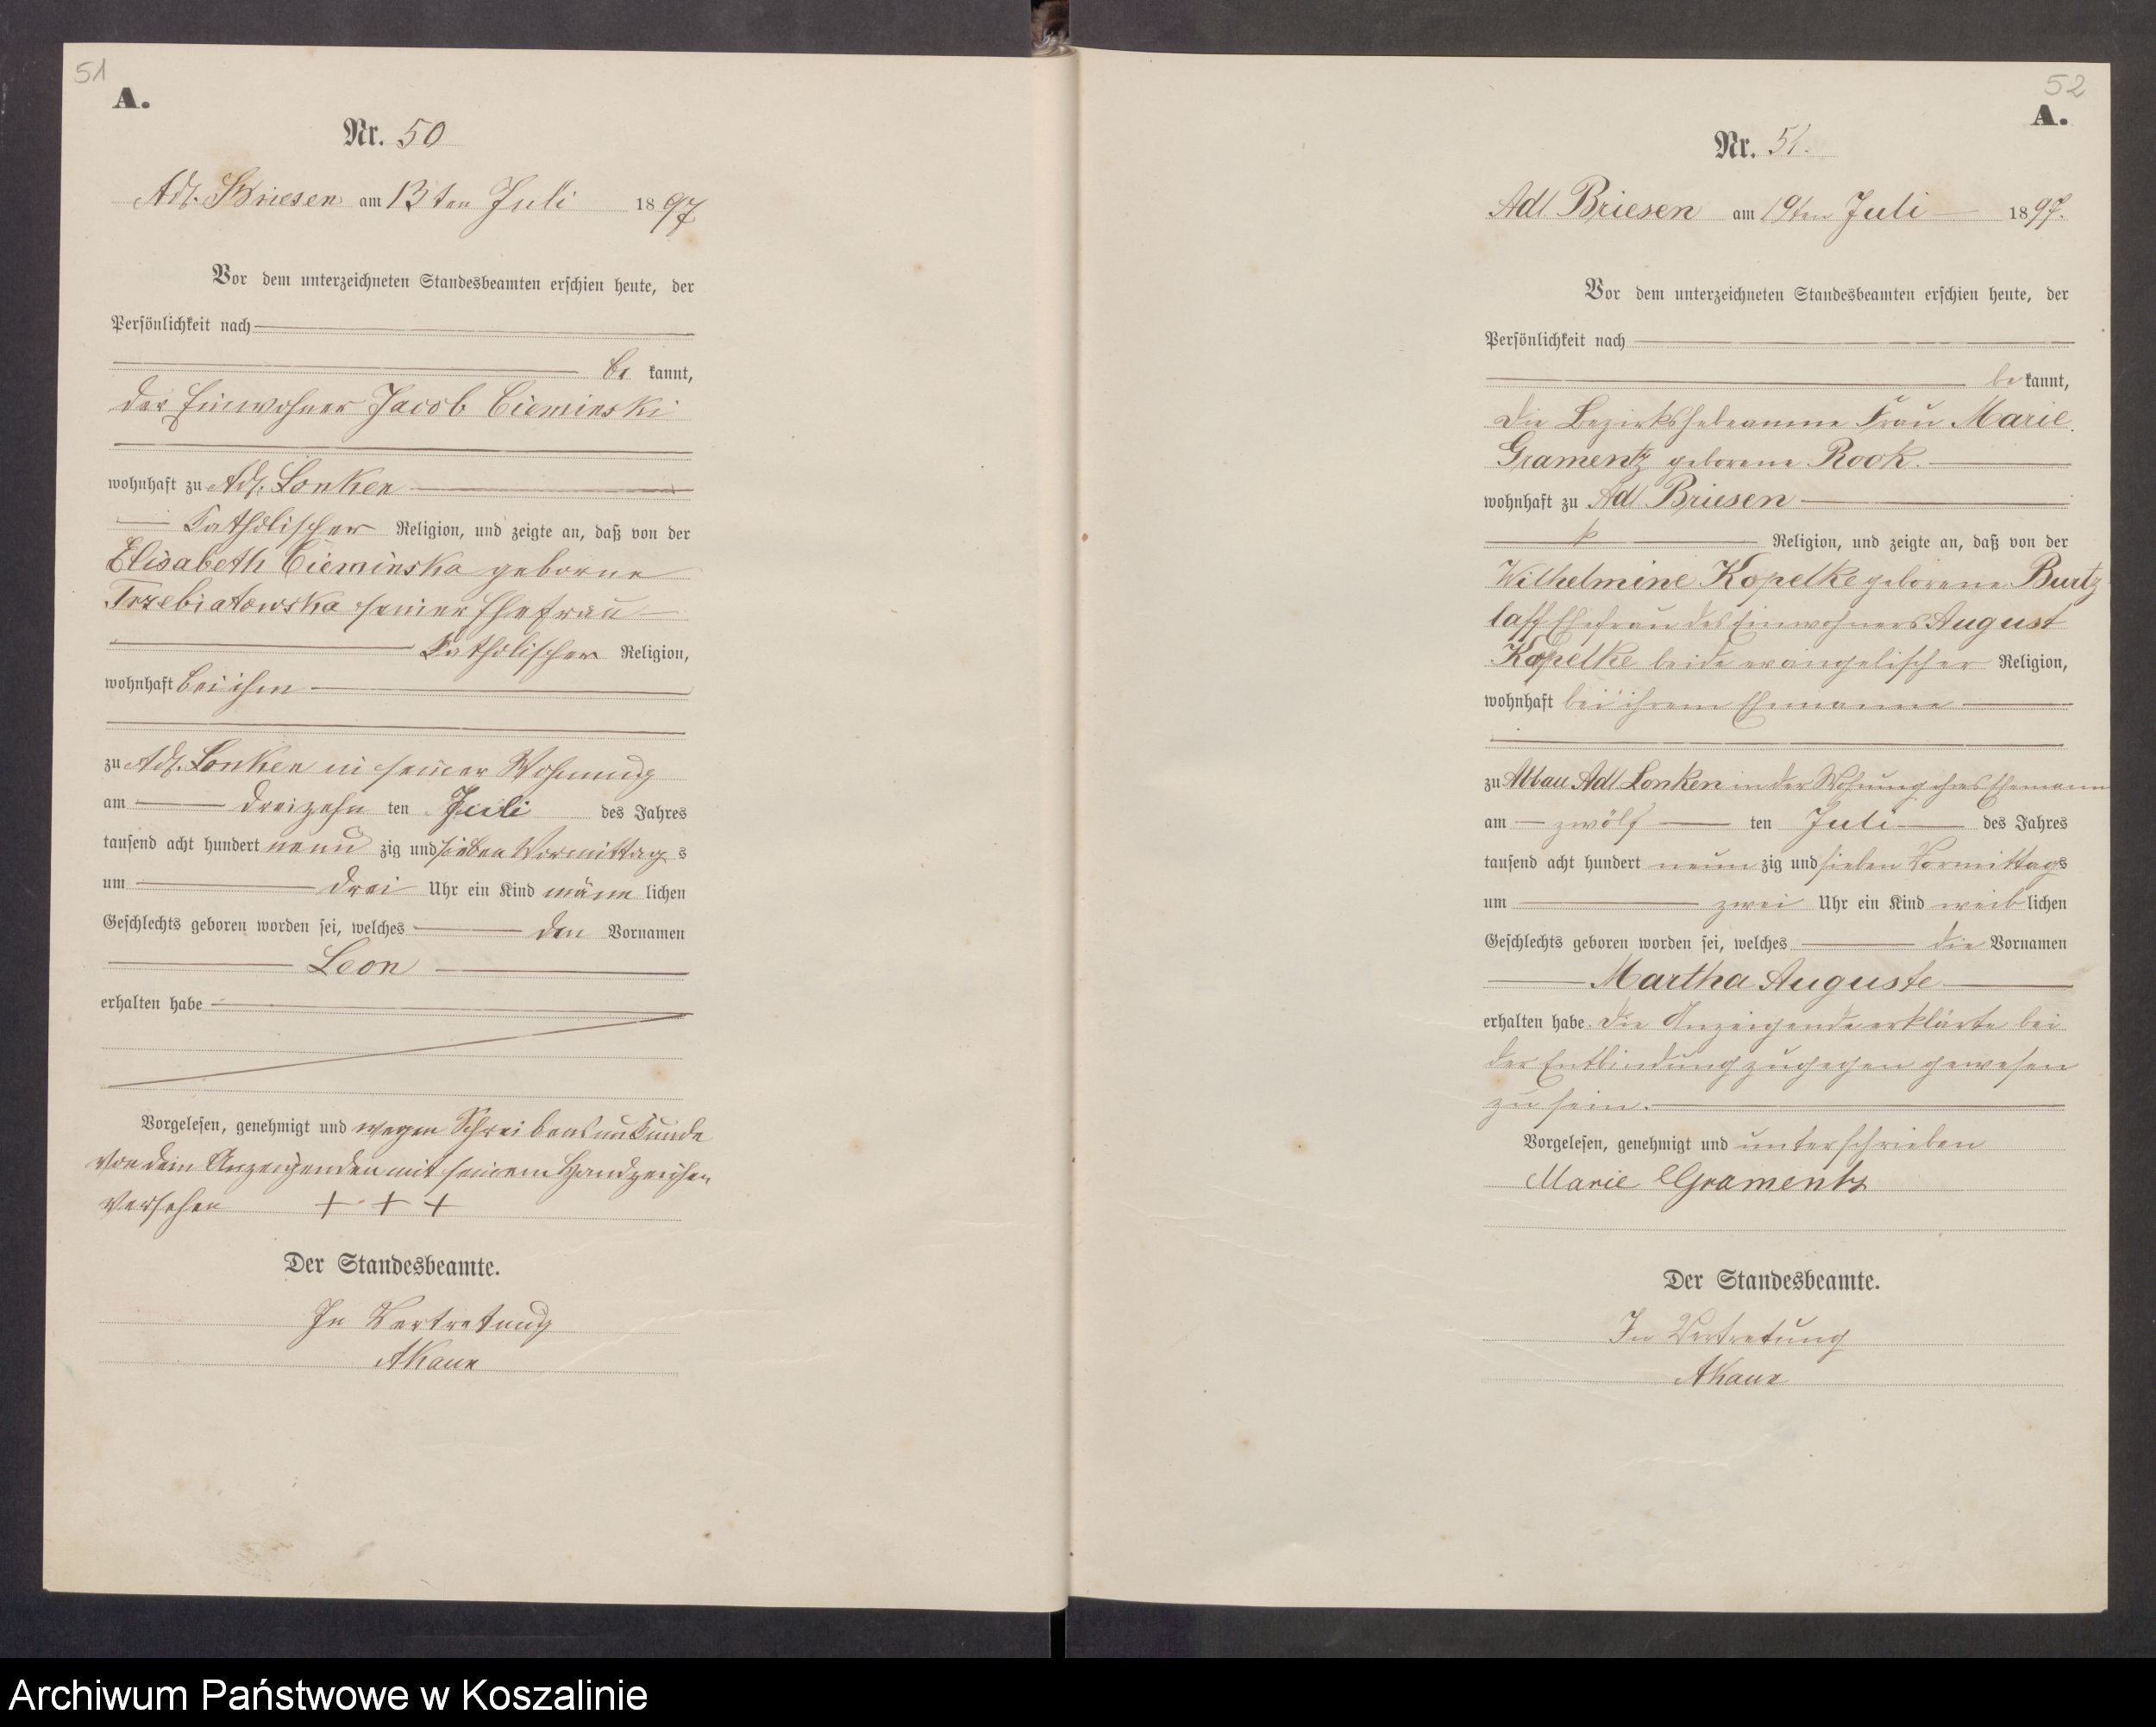 51
A.
Nr. 50
Adl. Briesen am 13ten Juli 1897
Vor dem unterzeichneten Standesbeamten erschien heute, der
Persönlichkeit nach
be kannt,
der Einwohner Jacob Cieminski
wohnhaft zu Adl. Lonken
Katholischer Religion, und zeigte an, daß von der
Elisabeth Cieminska geborne
Trzebiatowska seiner Ehefrau
Katholischer Religion,
wohnhaft bei ihm
zu Adl. Lonken in seiner Wohnung
am dreizehn ten Juli des Jahres
tausend acht hundert neun zig und sieben Vormittag s
um drei Uhr ein Kind männ lichen
Geschlechts geboren worden sei, welches den Vornamen
Leon
erhalten habe
Vorgelesen, genehmigt und wegen Schreibensunkunde
von dem Anzeigenden mit seinem Handzeichen
versehen + + +
Der Standesbeamte.
In Vertretung
52
A.
Nr. 51.
Adl. Briesen am 19ten Juli 1897.
Vor dem unterzeichneten Standesbeamten erschien heute, der
Persönlichkeit nach
be kannt,
die Bezirkshebeamme Frau Marie
Gramentz geborene Rook.
wohnhaft zu Adl Briesen
Religion, und zeigte an, daß von der
Wilhelmine Kopelke geborene Burtz
laff Ehefrau des Einwohners August
Kopelke beide evangelischer Religion,
wohnhaft bei ihrem Ehemanne
zu Abbau Adl Lonken in der Wohnung ihres Ehemann
am zwölf ten Juli des Jahres
tausend acht hundert neun zig und sieben Vormittags
um zwei Uhr ein Kind weib lichen
Geschlechts geboren worden sei, welches die Vornamen
Martha Auguste
erhalten habe. Die Anzeigende erklärte bei
der Entbindung zugegen gewesen
zu sein.
Vorgelesen, genehmigt und unterschrieben
Marie Gramentz
Der Standesbeamte.
In Vertretung
Archiwum Państwowe w Koszalinie